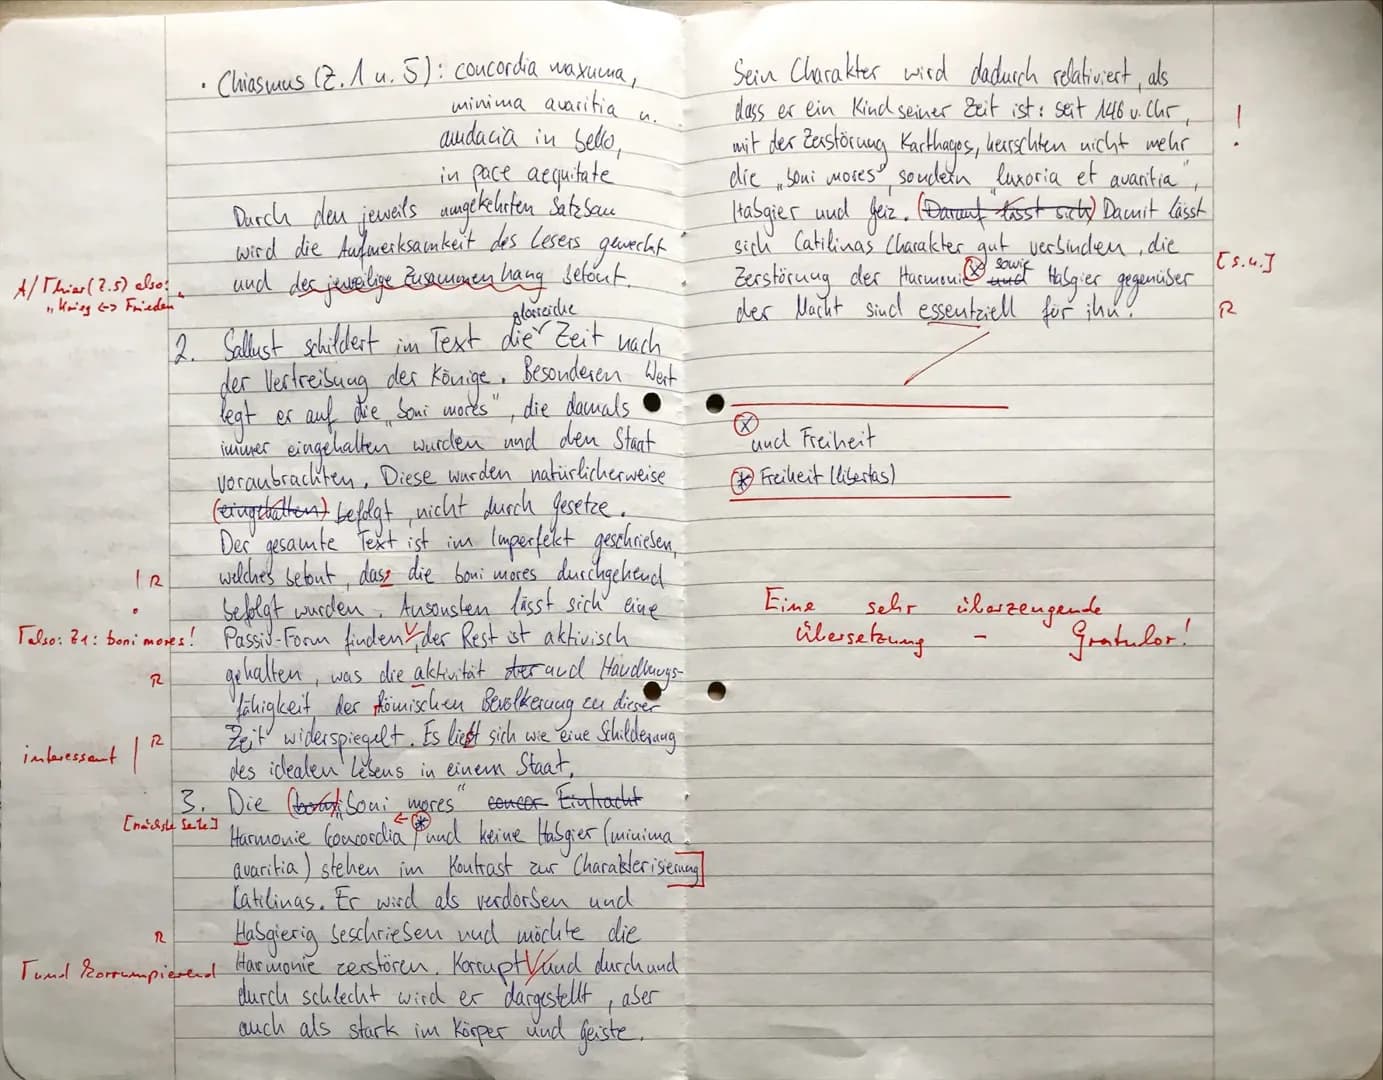 • Chiasmus (Z. 1 u. 5): concordia maxuma,
minima avaritia u.
audacia in bello,
in pace aequitate
Durch den jeweils umgekehrten Satzbau
wird die Aufmerksamkeit des Lesers geweckt
und der jeweilige Zusammenhang betont.
A/ Γ hier (Z.5) also:
"Krieg <-> Frieden"
glorreiche
2. Sallust schildert im Text die Zeit nach
der Vertreibung der Könige. Besonderen Wert
legt er auf die „boni mores", die damals
immer eingehalten wurden und den Staat
voranbrachten. Diese wurden natürlicherweise
(eingehalten) befolgt, nicht durch Gesetze.
Der gesamte Text ist im Imperfekt geschrieben,
welches betont, dass die boni mores durchgehend
! R
befolgt wurden. Ansonsten lässt sich eine
Passiv-Form finden, der Rest ist aktivisch
Γ also: Z1: boni mores!
gehalten, was die aktivität der und Handlungs-
R
fähigkeit der Römischen Bevölkerung zu dieser
Zeit widerspiegelt. Es ließt sich wie eine Schilderung
interessant | R
des idealen Lebens in einem Staat.
3. Die (boni) „boni mores" concor Eintracht
[nächste Seite]
Harmonie (concordia) und keine Habgier (minima
avaritia) stehen im Kontrast zur Charakterisierung
Catilinas. Er wird als verdorben und
Habgierig beschrieben und möchte die
R
Harmonie zerstören. Korrupt und durch und
Γ und korrumpierend
durch schlecht wird er dargestellt, aber
auch als stark im Körper und Geiste.
Sein Charakter wird dadurch relativiert, als
dass er ein Kind seiner Zeit ist: seit 146 v. Chr,
!
mit der Zerstörung Karthagos, herrschten nicht mehr
die „boni mores", sondern "luxoria et avaritia",
Habgier und Geiz. (Darauf lässt sich) Damit lässt
sich Catilinas Charakter gut verbinden, die
Zerstörung der Harmonie (x) und sowie Habgier gegenüber
[s.u.]
der Macht sind essentziell für ihn.
R
(x)
und Freiheit
(*) Freiheit (libertas)
Eine sehr überzeugende
Übersetzung - Gratulor!